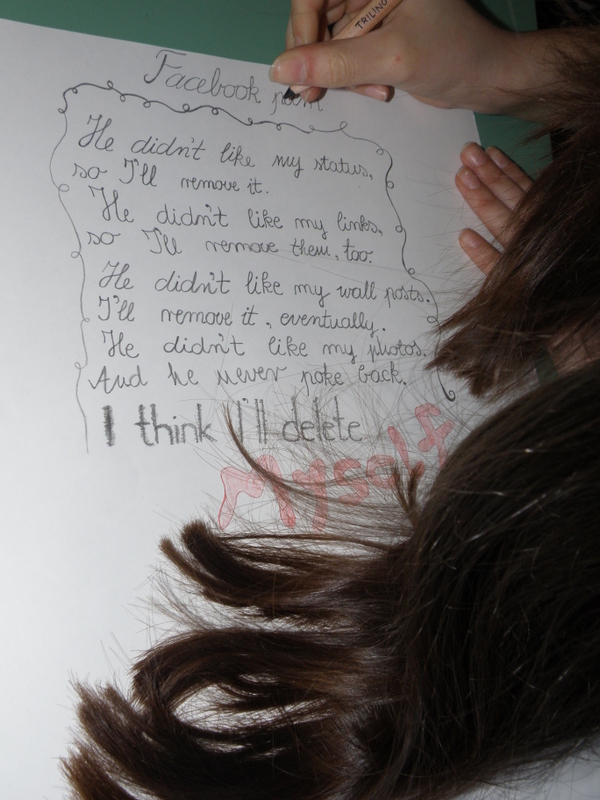 TRILINO
Facebook poem
He didn't like my status,
so I'll remove it.
He didn't like my links,
so I'll remove them, too.
He didn't like my wall posts.
I'll remove it, eventually.
He didn't like my photos.
And he never poke back.
I think I'll delete
Myself